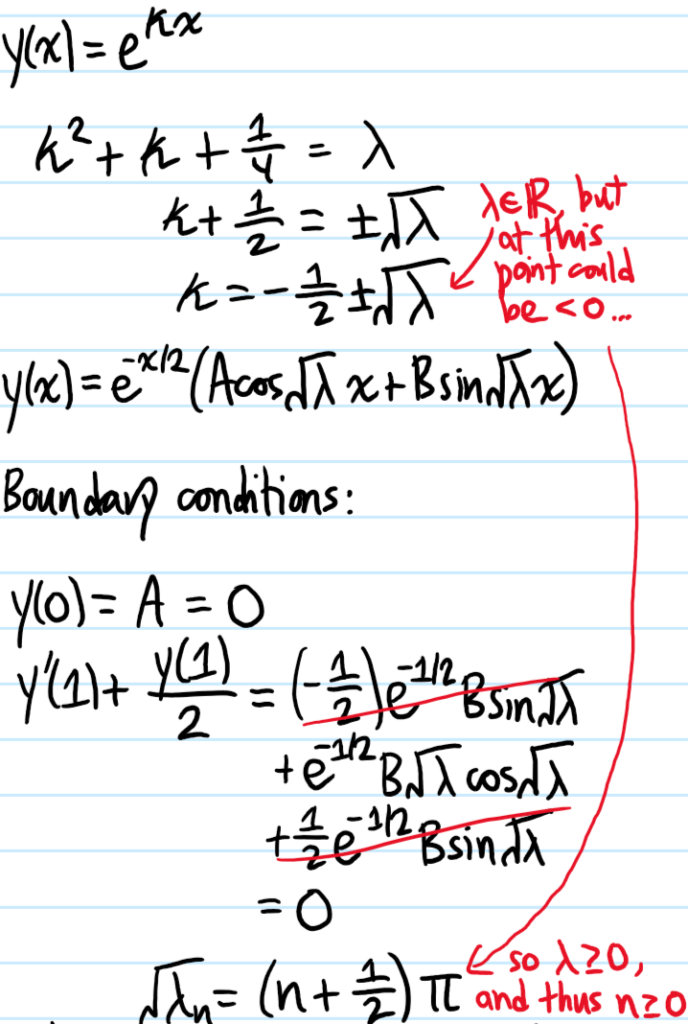 y(x) = e^{kx}
k² + k + 1/4 = λ
k + 1/2 = ±√λ
k = -1/2 ± √λ
λ∈ℝ, but
at this
point could
be < 0...
y(x) = e^{-x/2}(A cos√λ x + B sin√λ x)
Boundary conditions:
y(0) = A = 0
y'(1) + y(1)/2 = (-1/2)e^{-1/2} B sin√λ
+ e^{-1/2} B√λ cos√λ
+ 1/2 e^{-1/2} B sin√λ
= 0
√λₙ = (n + 1/2) π
so λ ≥ 0,
and thus n ≥ 0